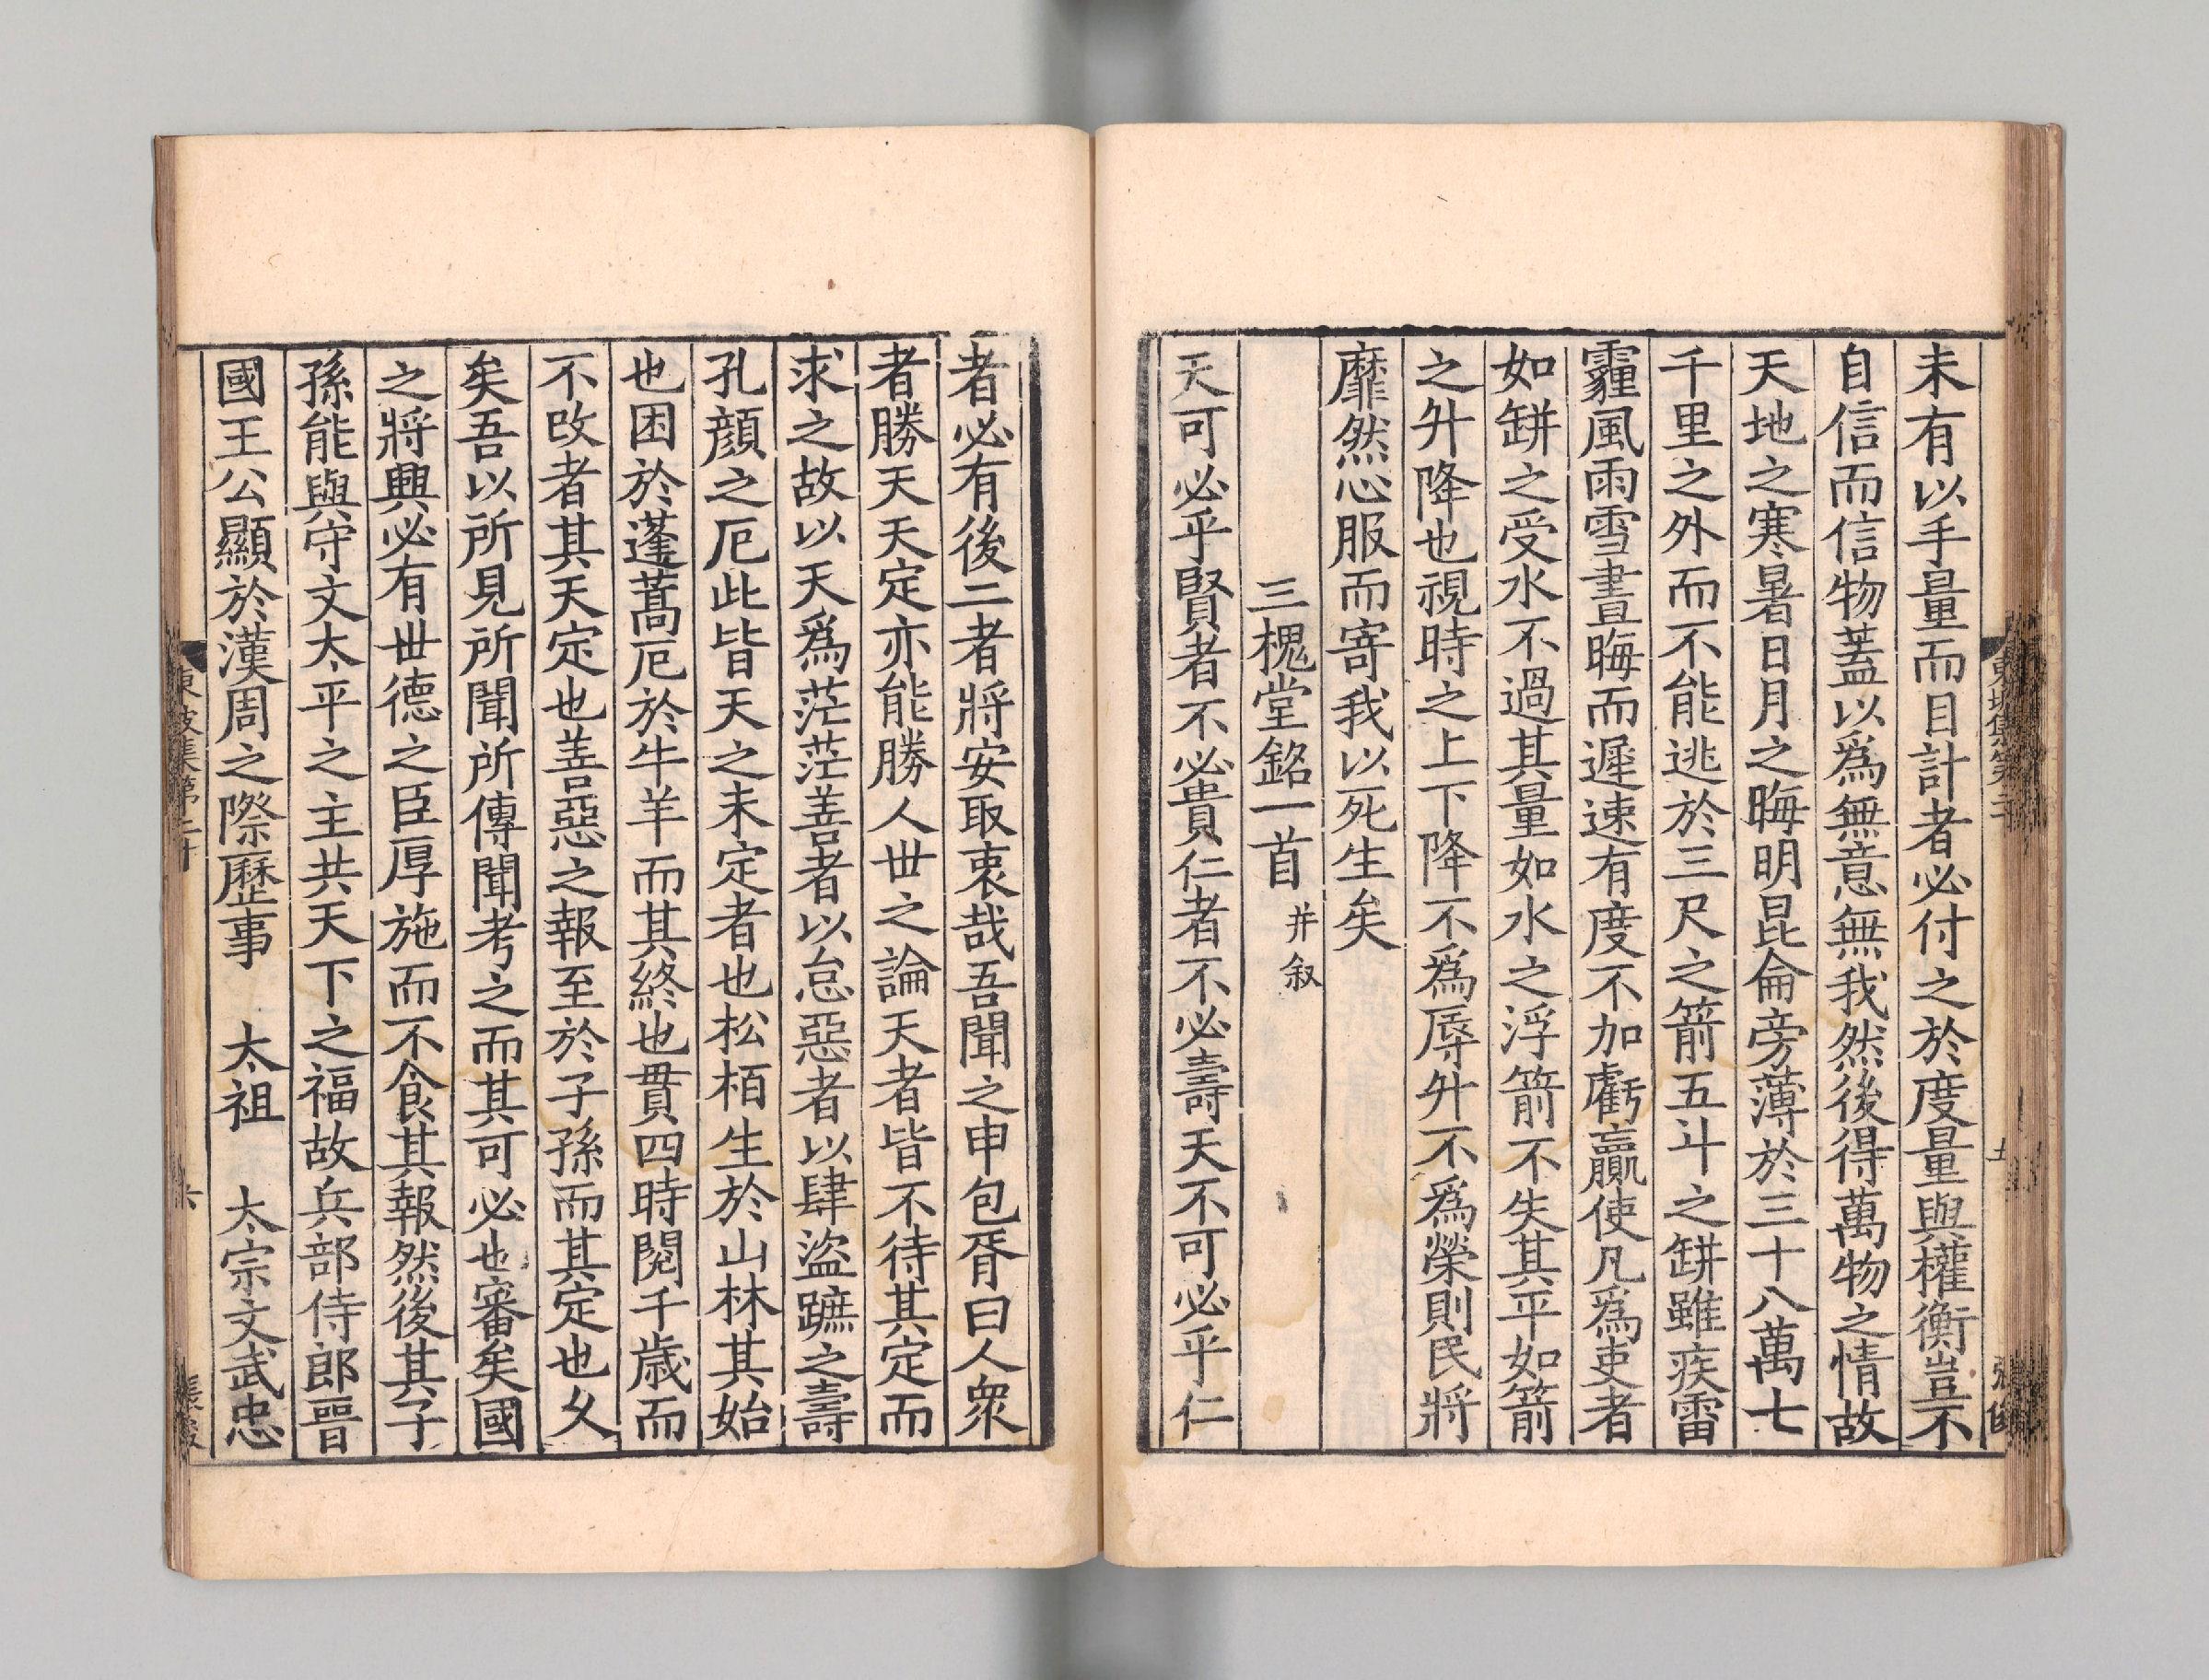 未有以手量而目計者必付之於度量與權衡豈不
自信而信物蓋以爲無意無我然後得萬物之情故
天地之寒暑日月之晦明昆侖旁薄於三十八萬七
千里之外而不能逃於三尺之箭五斗之缾雖疾雷
霾風雨雪晝晦而遲速有度不加虧贏使凡爲吏者
如缾之受水不過其量如水之浮箭不失其平如箭
之升降也視時之上下降不爲辱升不爲榮則民將
靡然心服而寄我以死生矣
三槐堂銘一首 并叙
天可必乎賢者不必貴仁者不必壽天不可必乎仁
者必有後二者將安取衷哉吾聞之申包胥曰人衆
者勝天天定亦能勝人世之論天者皆不待其定而
求之故以天爲茫茫善者以怠惡者以肆盜蹠之壽
孔顔之厄此皆天之未定者也松栢生於山林其始
也困於蓬蒿厄於牛羊而其終也貫四時閱千歳而
不改者其天定也善惡之報至於子孫而其定也久
矣吾以所見所聞所傳聞考之而其可必也審矣國
之將興必有世德之臣厚施而不食其報然後其子
孫能與守文太平之主共天下之福故兵部侍郎晉
國王公顯於漢周之際歷事 太祖 太宗文武忠
東坡集第二十
六